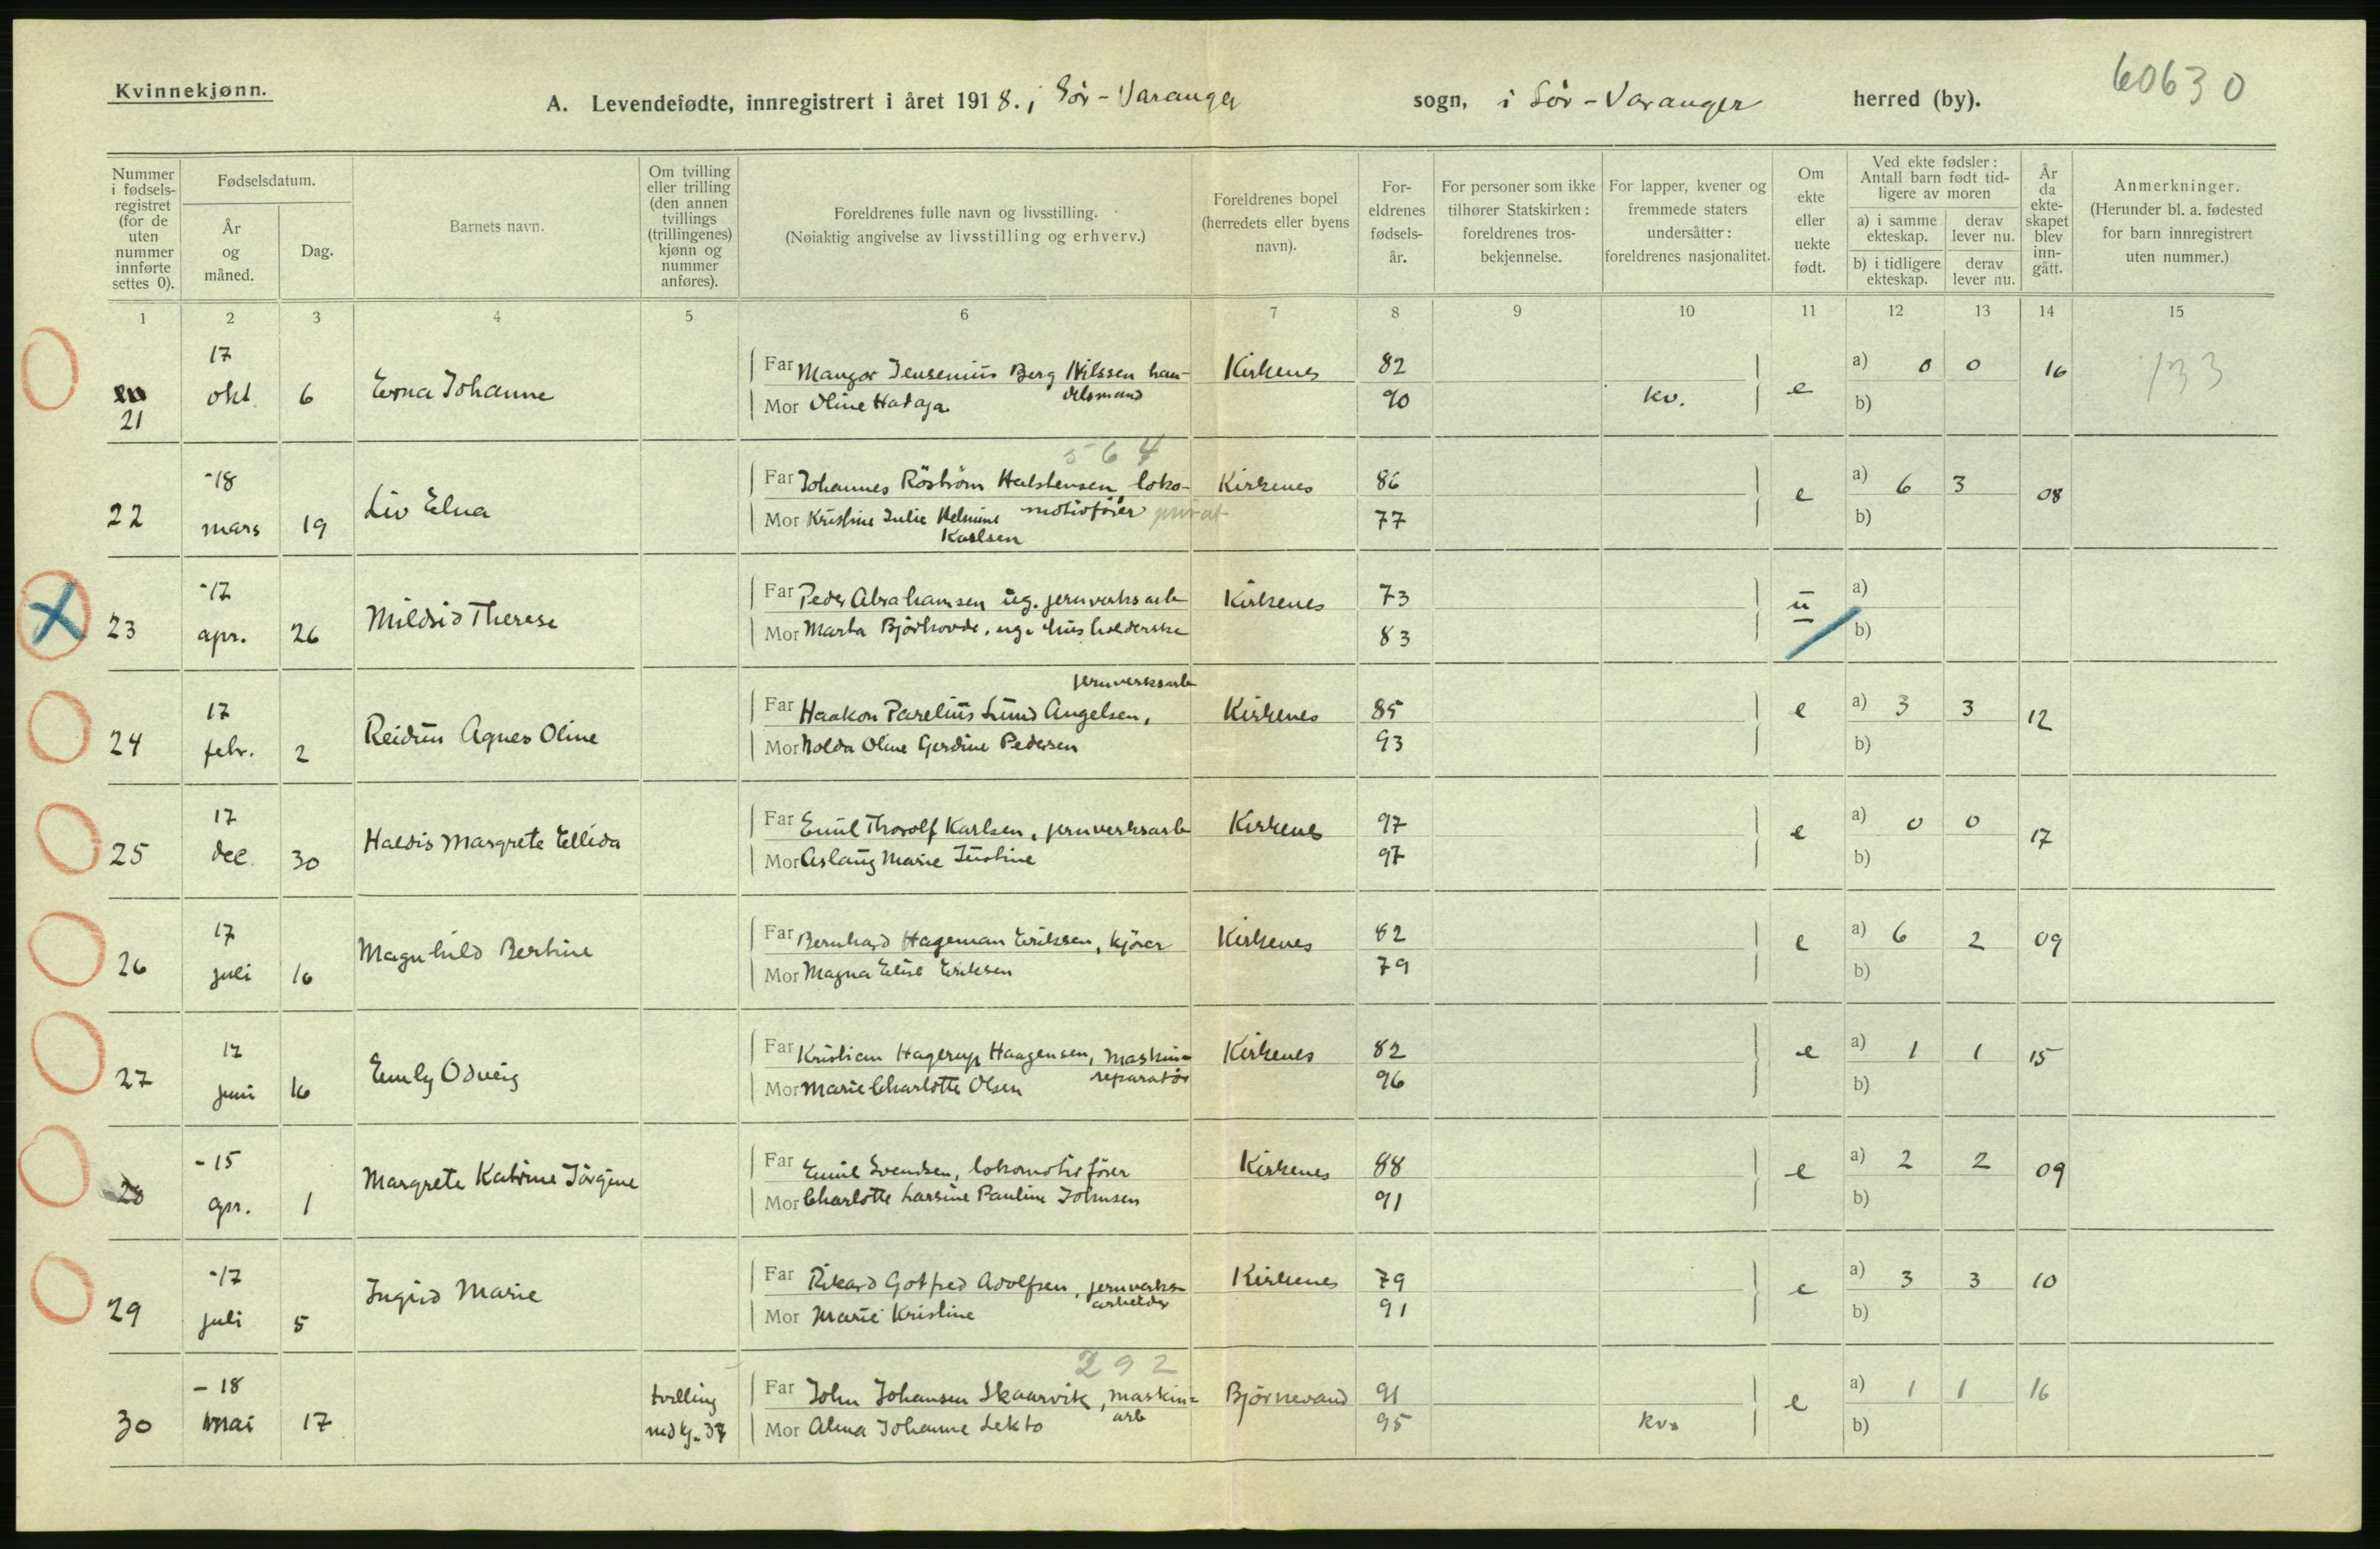 Kvinnekjønn.
60630
A. Levendefødte, innregistrert i året 1918. i Sör-Varanger sogn, i Sör-Varanger herred (by).
Nummer i fødselsregistret (for de uten nummer innførte settes 0).
Fødselsdatum.
År og måned.
Dag.
Barnets navn.
Om tvilling eller trilling (den annen tvillings (trillingenes) kjønn og nummer anføres).
Foreldrenes fulle navn og livsstilling.
(Nøiaktig angivelse av livsstilling og erhverv.)
Foreldrenes bopel (herredets eller byens navn).
Foreldrenes fødselsår.
For personer som ikke tilhører Statskirken: foreldrenes trosbekjennelse.
For lapper, kvener og fremmede staters undersåtter: foreldrenes nasjonalitet.
Om ekte eller uekte født.
Ved ekte fødsler: Antall barn født tidligere av moren
a) i samme ekteskap.
derav lever nu.
b) i tidligere ekteskap.
derav lever nu.
År da ekteskapet blev inngått.
Anmerkninger.
(Herunder bl. a. fødested for barn innregistrert uten nummer.)
1 2 3 4 5 6 7 8 9 10 11 12 13 14 15
21 17 okt. 6 Erna Johanne
Far Mangor Jensenius Berg Nilssen handelsmand Kirkenes 82 e a) 0 0 16 133
Mor Oline Hataja 90 kv. b)
564
22 -18 mars 19 Liv Elna
Far Johannes Röström Halstensen, lokomotivfører privat Kirkenes 86 e a) 6 3 08
Mor Kristine Julie Helmine Karlsen 77 b)
23 -17 apr. 26 Mildrid Therese
Far Peder Abrahamsen ug. jernverksarb Kirkenes 73 u a)
Mor Marta Björhovde, ug. husholderske 83 b)
24 17 febr. 2 Reidun Agnes Oline
jernverksarb
Far Haakon Parelius Lund Angelsen, Kirkenes 85 e a) 3 3 12
Mor Holda Oline Gerdine Pedersen 93 b)
25 17 dec. 30 Haldis Margrete Ellida
Far Emil Thorolf Karlsen, jernverksarb Kirkenes 97 e a) 0 0 17
Mor Aslaug Marie Justine 97 b)
26 17 juli 16 Magnhild Bertine
Far Bernhard Hageman Eriksen, kjörer Kirkenes 82 e a) 6 2 09
Mor Magna Elise Eriksen 79 b)
27 17 juni 16 Emly Odveig
Far Kristian Hagerup Haagensen, maskinreparatör Kirkenes 82 e a) 1 1 15
Mor Marie Charlotte Olsen 96 b)
28 -15 apr. 1 Margrete Katrine Jörgine
Far Emil Svendsen, lokomotivförer Kirkenes 88 e a) 2 2 09
Mor Charlotte Larsine Pauline Johnsen 91 b)
29 -17 juli 5 Ingrid Marie
Far Rikard Gotfred Adolfsen, jernverksarbeider Kirkenes 79 e a) 3 3 10
Mor Marie Kristine 91 b)
292
30 -18 mai 17 tvilling med kj. 37
Far John Johansen Skaarvik, maskinarb Björnevand 91 e a) 1 1 16
Mor Alma Johanne Lekto 95 kv. b)